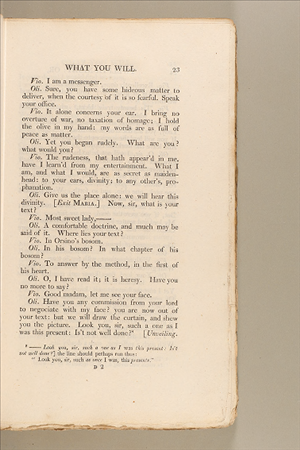 WHAT YOU WILL. 23
Vio. I am a messenger.
Oli. Sure, you have some hideous matter to
deliver, when the courtesy of it is so fearful. Speak
your office.
Vio. It alone concerns your ear. I bring no
overture of war, no taxation of homage; I hold
the olive in my hand: my words are as full of
peace as matter.
Oli. Yet you begun rudely. What are you?
what would you?
Vio. The rudeness, that hath appear'd in me,
have I learn'd from my entertainment. What I
am, and what I would, are as secret as maiden-
head: to your ears, divinity; to any other's, pro-
phanation.
Oli. Give us the place alone: we will hear this
divinity. [Exit MARIA.] Now, sir, what is your
text?
Vio. Most sweet lady,——
Oli. A comfortable doctrine, and much may be
said of it. Where lies your text?
Vio. In Orsino's bosom.
Oli. In his bosom? In what chapter of his
bosom?
Vio. To answer by the method, in the first of
his heart.
Oli. O, I have read it; it is heresy. Have you
no more to say?
Vio. Good madam, let me see your face.
Oli. Have you any commission from your lord
to negociate with my face? you are now out of
your text: but we will draw the curtain, and shew
you the picture. Look you, sir, such a one as I
was this present: Is't not well done? [Unveiling.
—— Look you, sir, such a one as I was this present: Is't
not well done?] the line should perhaps run thus:
"Look you, sir, such as once I was, this presents."
D 2